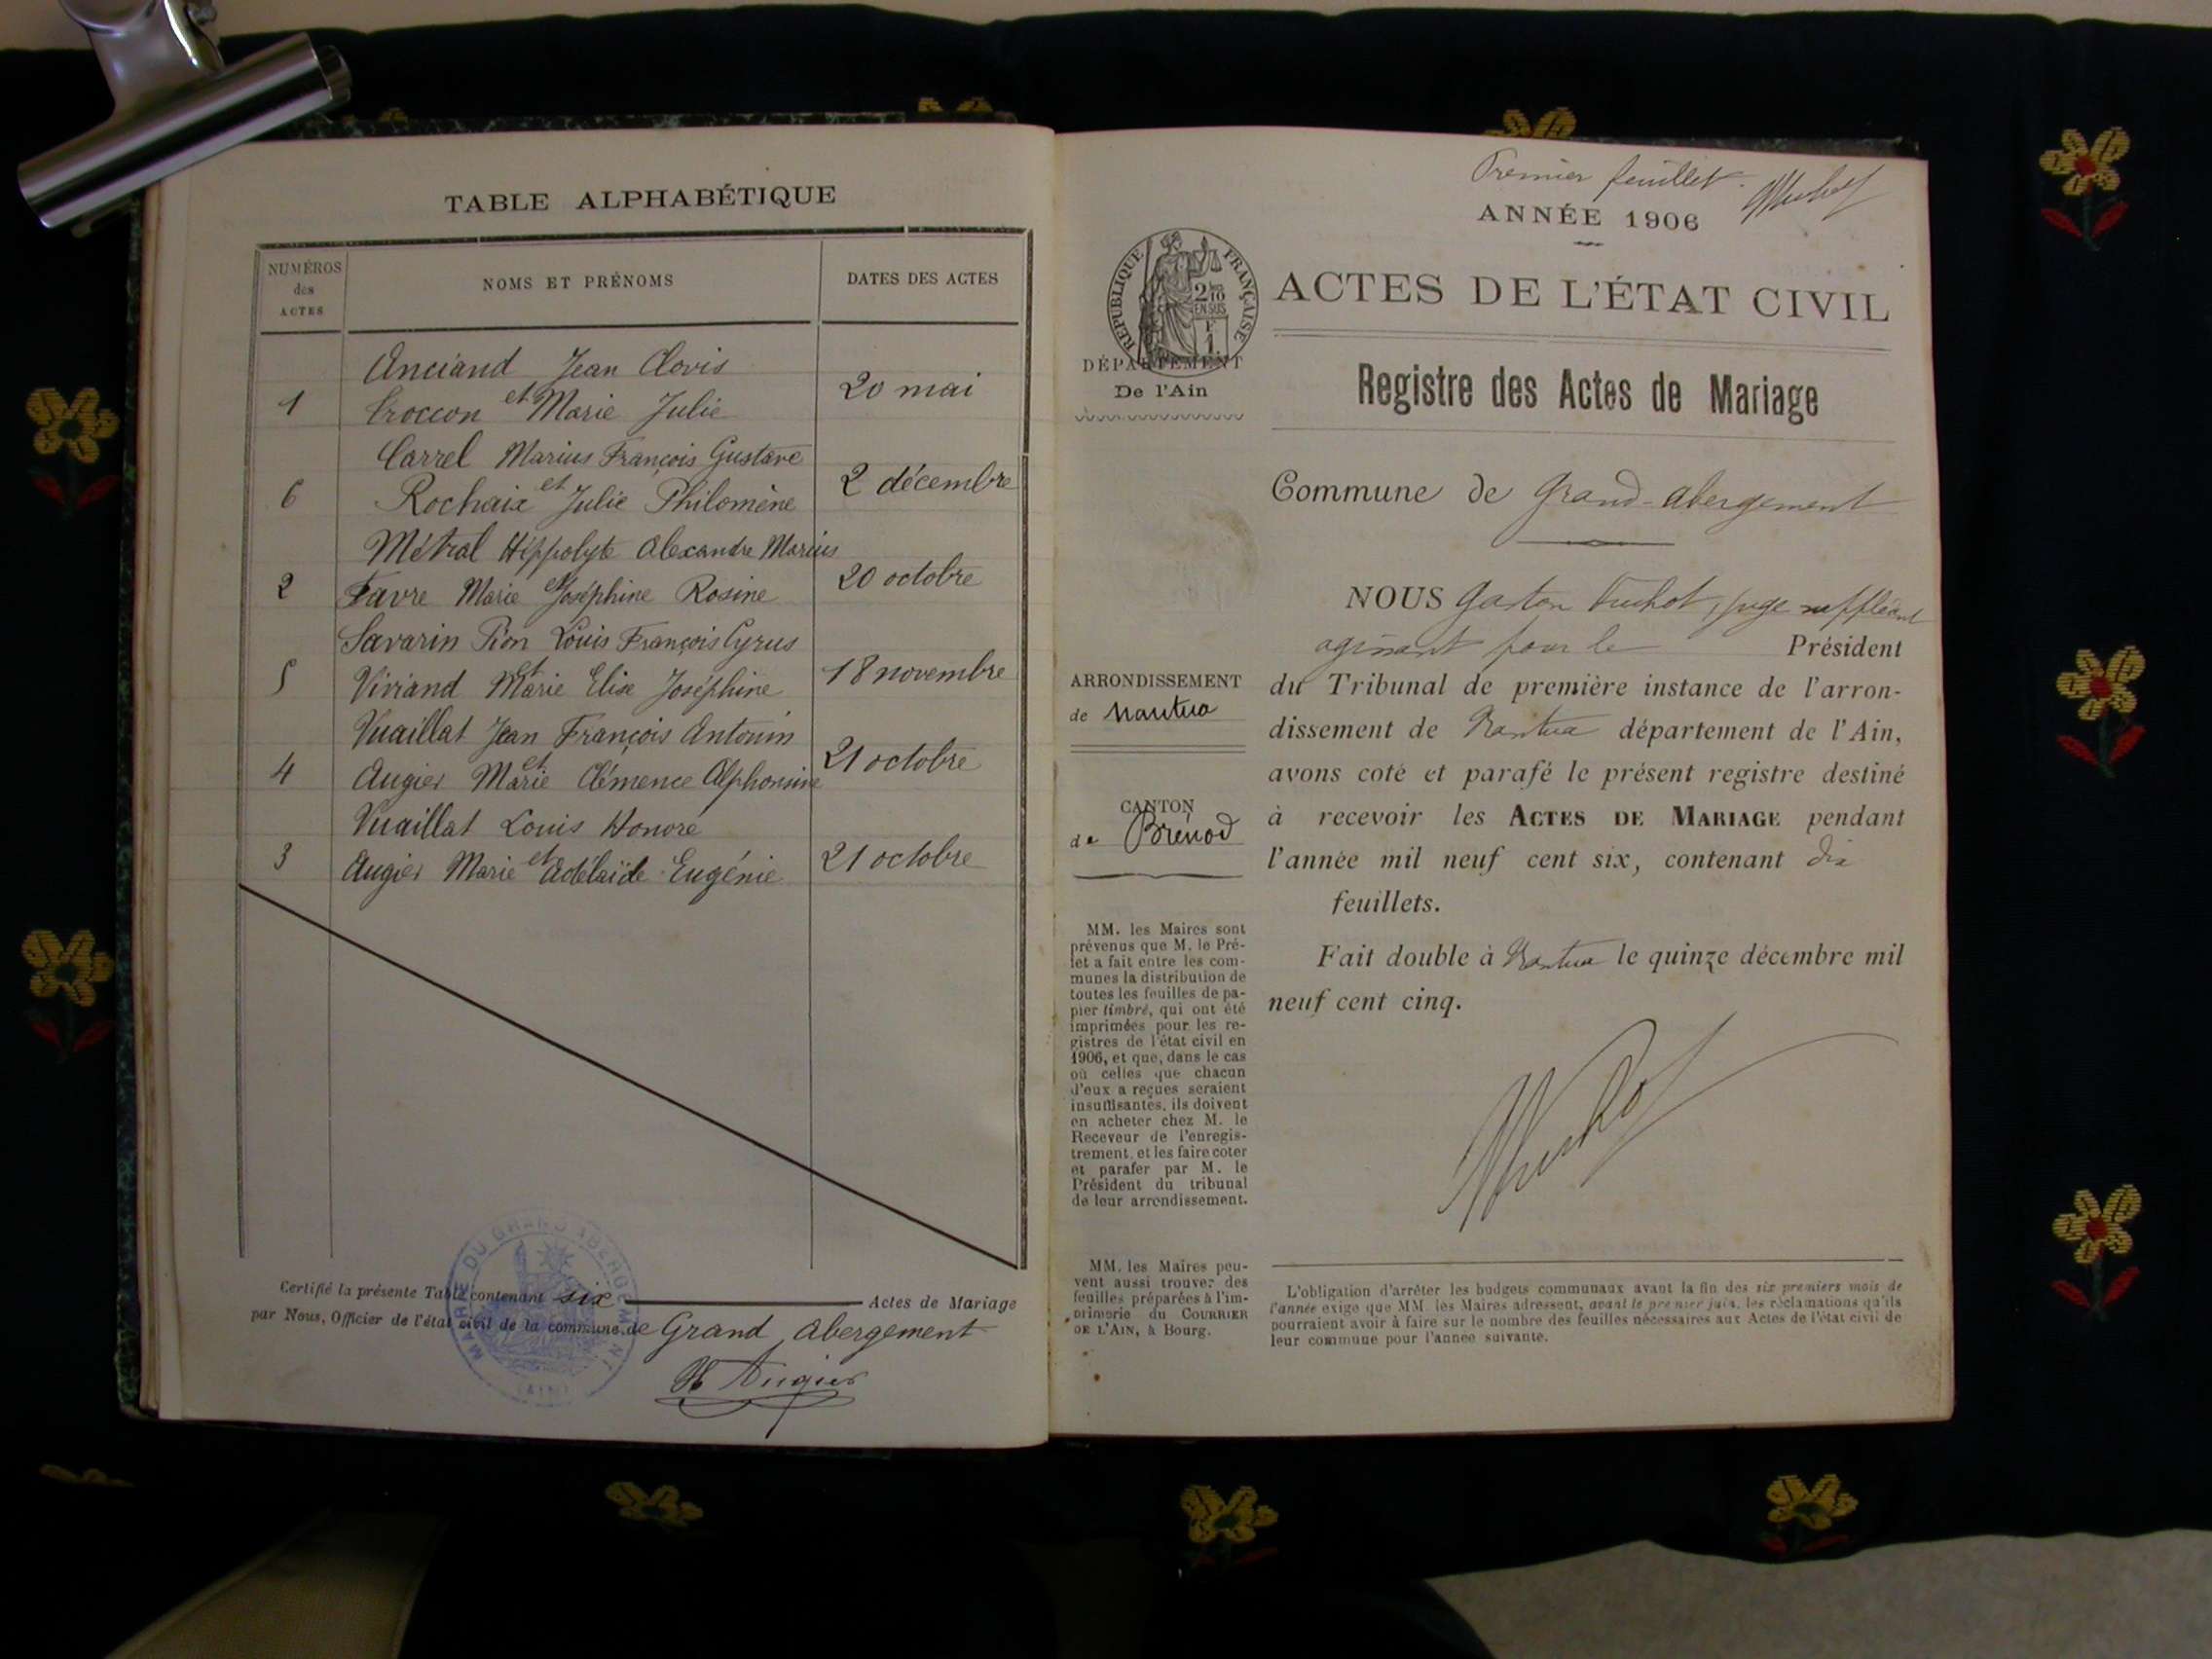 TABLE ALPHABÉTIQUE
NUMÉROS
des
ACTES
NOMS ET PRÉNOMS
DATES DES ACTES
Anciand Jean Clovis
et
1 Croccon Marie Julie 20 mai
Carrel Marius François Gustave
et
6 Rochaix Julie Philomène 2 décembre
Métral Hippolyte Alexandre Marius
et
2 Favre Marie Joséphine Rosine 20 octobre
Savarin Pion Louis François Cyrus
et
5 Viviand Marie Elise Joséphine 18 novembre
Vuaillat Jean François Antonin
et
4 Augier Marie Clémence Alphonsine 21 octobre
Vuaillat Louis Honoré
et
3 Augier Marie Adélaïde Eugénie 21 octobre
Certifié la présente Table contenant six Actes de Mariage
par Nous, Officier de l'état civil de la commune de Grand Abergement
MAIRIE DU GRAND ABERGEMENT
(AIN)
Augier
Premier feuillet.
ANNÉE 1906
RÉPUBLIQUE FRANÇAISE
2/10
EN SUS
F.
1
ACTES DE L'ÉTAT CIVIL
DÉPARTEMENT
De l'Ain
Registre des Actes de Mariage
Commune de Grand-Abergement
NOUS Gaston Vuchot, juge suppléant
agissant pour le Président
du Tribunal de première instance de l'arron-
dissement de Nantua département de l'Ain,
avons coté et parafé le présent registre destiné
à recevoir les ACTES DE MARIAGE pendant
l'année mil neuf cent six, contenant dix
feuillets.
Fait double à Nantua le quinze décembre mil
neuf cent cinq.
ARRONDISSEMENT
de Nantua
CANTON
de Brénod
MM. les Maires sont
prévenus que M. le Pré-
fet a fait entre les com-
munes la distribution de
toutes les feuilles de pa-
pier timbré, qui ont été
imprimées pour les re-
gistres de l'état civil en
1906, et que, dans le cas
où celles que chacun
d'eux a reçues seraient
insuffisantes, ils doivent
en acheter chez M. le
Receveur de l'enregis-
trement, et les faire coter
et parafer par M. le
Président du tribunal
de leur arrondissement.
MM. les Maires peu-
vent aussi trouver des
feuilles préparées à l'im-
primerie du COURRIER
DE L'AIN, à Bourg.
L'obligation d'arrêter les budgets communaux avant la fin des six premiers mois de
l'année exige que MM. les Maires adressent, avant le premier juin, les réclamations qu'ils
pourraient avoir à faire sur le nombre des feuilles nécessaires aux Actes de l'état civil de
leur commune pour l'année suivante.